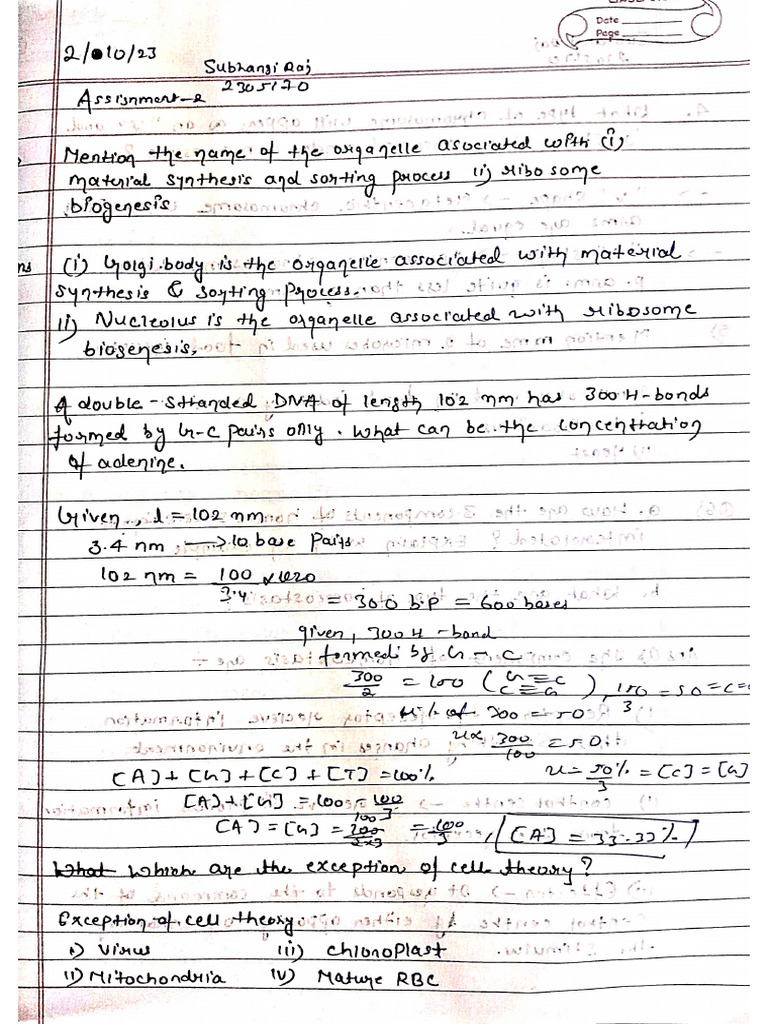 Date
Page
2/10/23
Subhangi Raj
2305170
Assignment-2
Mention the name of the organelle asociated with (i)
material synthesis and sorting process ii) ribosome
biogenesis
ns (i) Golgi body is the organelle associated with material
synthesis & sorting process.
ii) Nucleolus is the organelle associated with ribosome
biogenesis.
A double-stranded DNA of length 102 nm has 300 H-bonds
formed by G-C pairs only. What can be the concentration
of adenine.
Given, l = 102 nm
3.4 nm → 10 base pairs
102 nm = 100 x
3.4
= 300 b.p = 600 bases
given, 300 H-bond
formed by G-C
300/2 = 100 (G≡C C≡G), 150/3 = 50 = C =
% of 300 = 50
300/100 = 50
[A] + [G] + [C] + [T] = 100%
= 50%/3 = [C] = [G]
[A] + [G] = 100 = 100/3
[A] = [G] = 200/2×3 = 100/3, [A] = 33.33%
What Which are the exception of cell theory?
Exception of cell theory
i) Virus iii) Chloroplast
ii) Mitochondria iv) Mature RBC